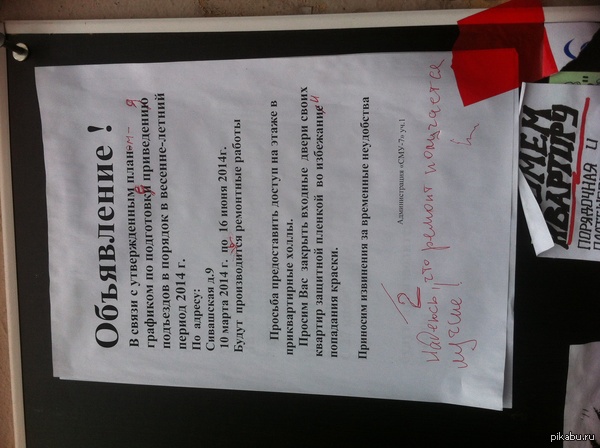 Объявление !
В связи с утвержденным план-м- я
графиком по подготовки е приведению
подъездов в порядок в весенне-летний
период 2014 г.
По адресу:
Сивашская д.9
10 марта 2014 г. по 16 июня 2014г.
Будут производится ремонтные работы
Просьба предоставить доступ на этаже в
приквартирные холлы.
Просим Вас закрыть входные двери своих
квартир защитной пленкой во избежание и
попадания краски.
Приносим извинения за временные неудобства
Администрация «СМУ-7» уч.1
2
Надеюсь, что ремонт получается
лучше!
КВАРТИРУ
ПОРЯДОЧНАЯ И
pikabu.ru